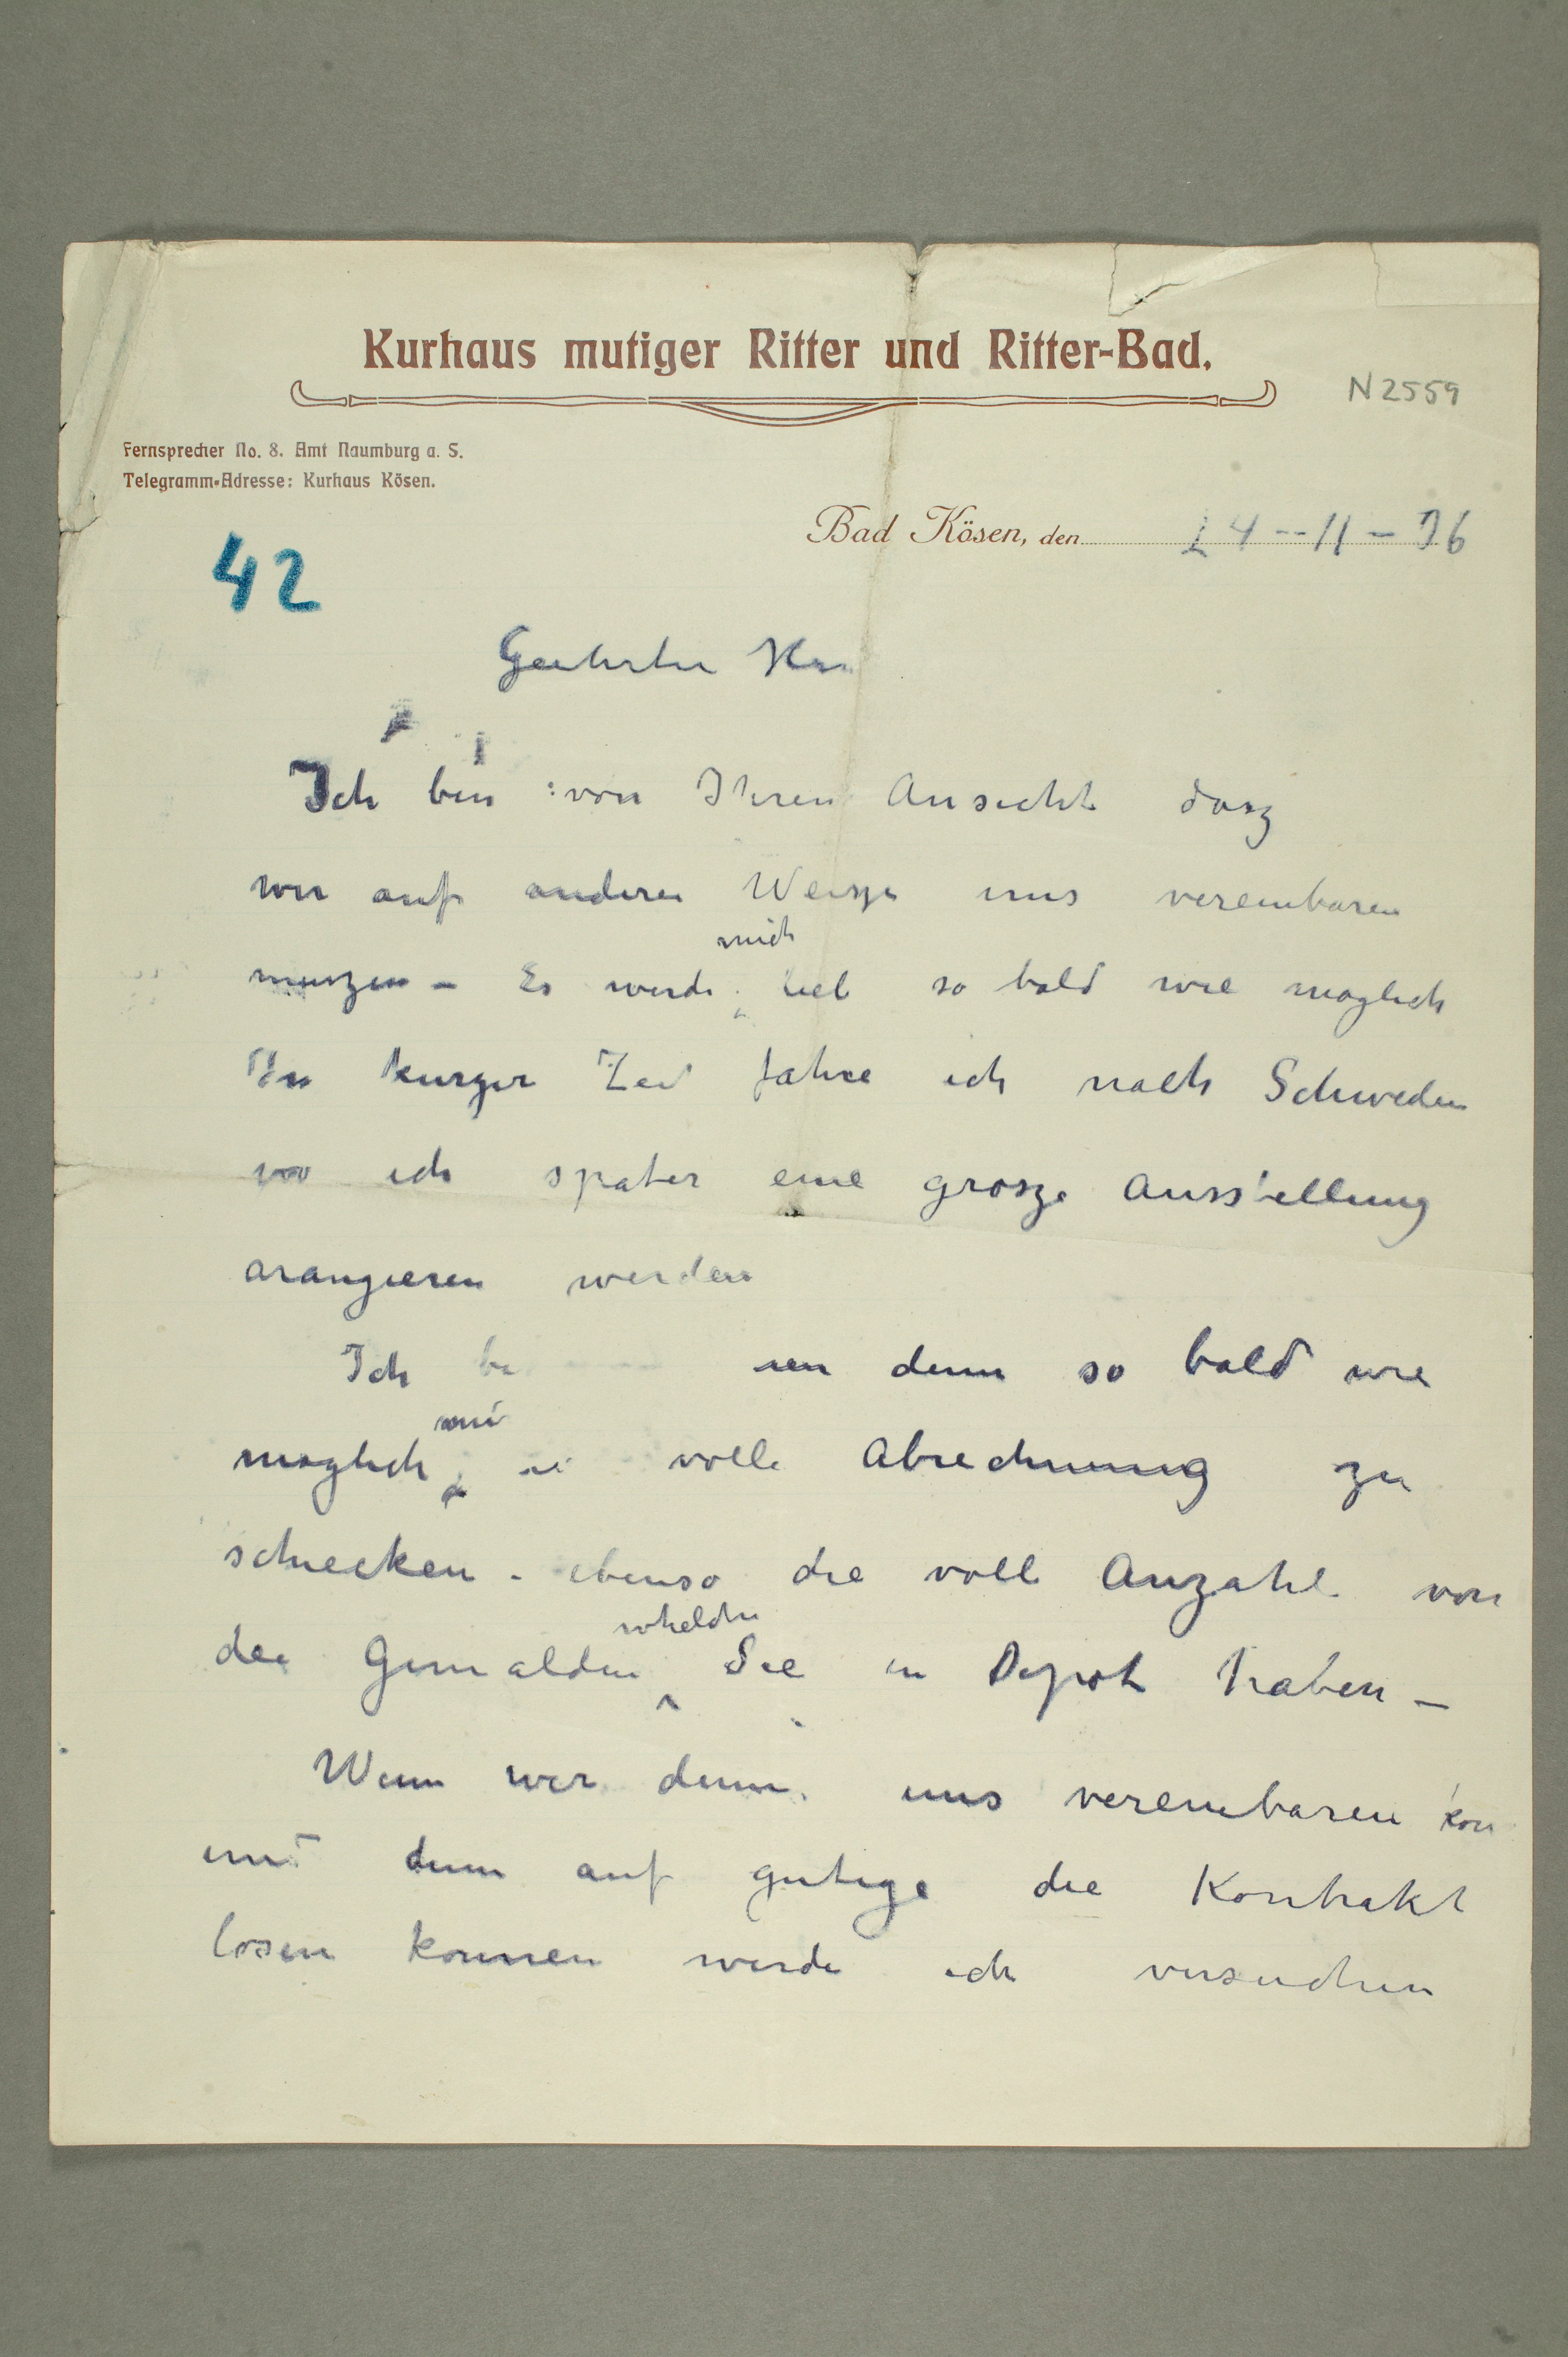 Kurhaus mutiger Ritter und Ritter-Bad.
N 2559
Fernsprecher No. 8. Amt Naumburg a. S.
Telegramm-Adresse: Kurhaus Kösen.
Bad Kösen, den 24--11-06
42
Geehrter Herr
Ich bin von Ihren Ansicht dasz
wir auf anderen Weisze uns vereinbaren
muszen – Es werde mich lieb so bald wie moglich
In kurzer Zeit fahre ich nach Schweden
wo ich spater eine grosze Ausstellung
arangieren werden
Ich den denn so bald wie
moglich mir volle Abrechnung zu
schiecken – ebenso die volle Anzahl von
den Gemalden whelche Sie in Depot haben –
Wenn wir denn uns vereinbaren kon
und denn auf gutige die Kontrakt
losen konnen werde ich versuchen